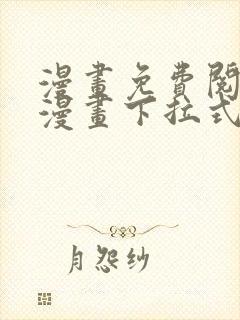 漫畫免費閱
漫畫下拉式
月怨纱